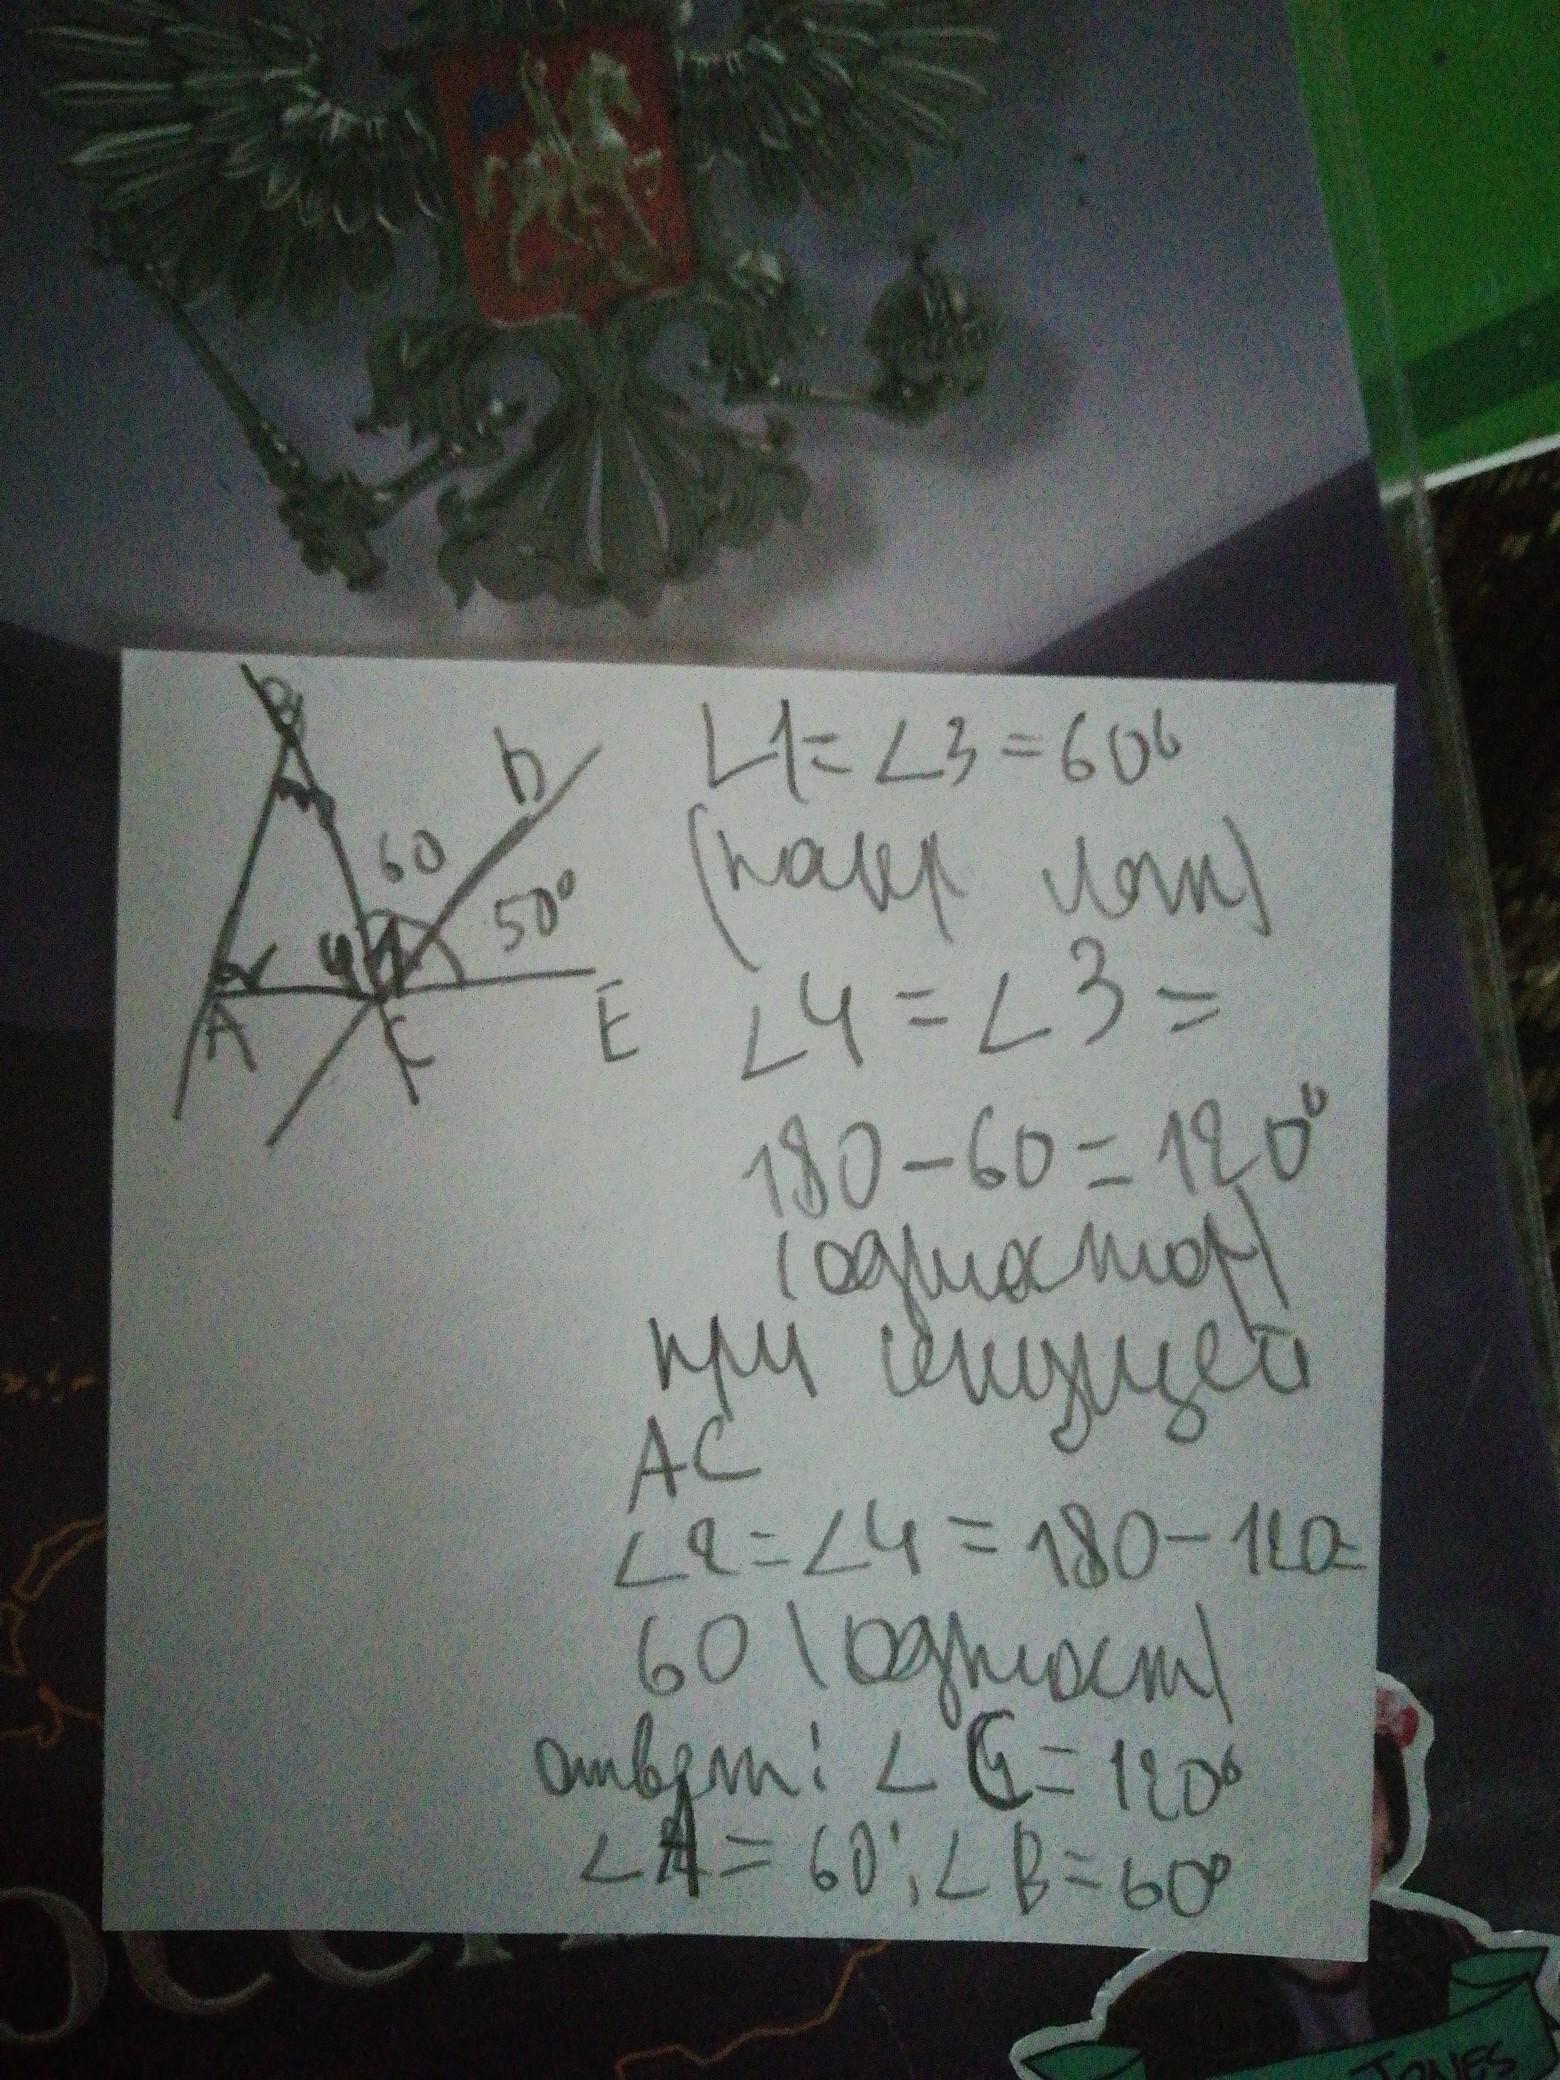 B
D
60
50°
4 1
2
A
C
E
∠1=∠3=60°
(накр леж)
∠4=∠3=
180-60=120°
(одност)
при секущей
AC
∠2=∠4=180-120=
60 (одност)
ответ: ∠C=120°
∠A=60°; ∠B=60°
JONES